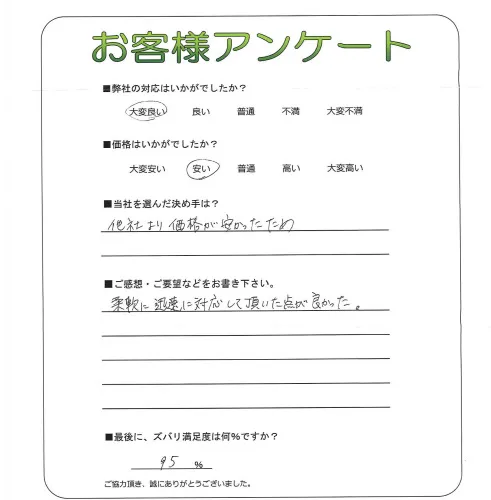 お客様アンケート
■弊社の対応はいかがでしたか？
大変良い 良い 普通 不満 大変不満
■価格はいかがでしたか？
大変安い 安い 普通 高い 大変高い
■当社を選んだ決め手は？
他社より価格が安かったため
■ご感想・ご要望などをお書き下さい。
柔軟に迅速に対応して頂いた点が良かった。
■最後に、ズバリ満足度は何%ですか？
95 %
ご協力頂き、誠にありがとうございました。